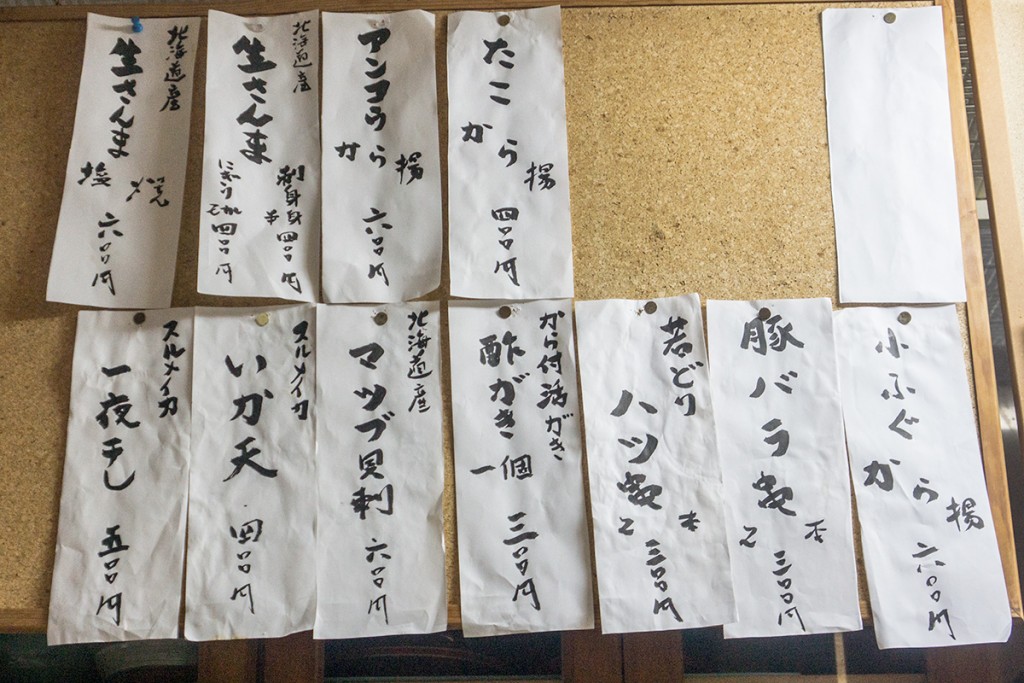 たこ
から揚
四〇〇円
アンコウ
から揚
六〇〇円
北海道産
生さんま
刺身
四〇〇円
にぎり
四〇〇円
北海道産
生さんま
塩焼
六〇〇円
小ふぐ
から揚
六〇〇円
豚バラ串
2本
三〇〇円
若どり
ハツ串
2本
三〇〇円
から付活がき
酢がき
一個
三〇〇円
北海道産
マツブ貝刺
六〇〇円
スルメイカ
いか天
四〇〇円
スルメイカ
一夜干し
五〇〇円